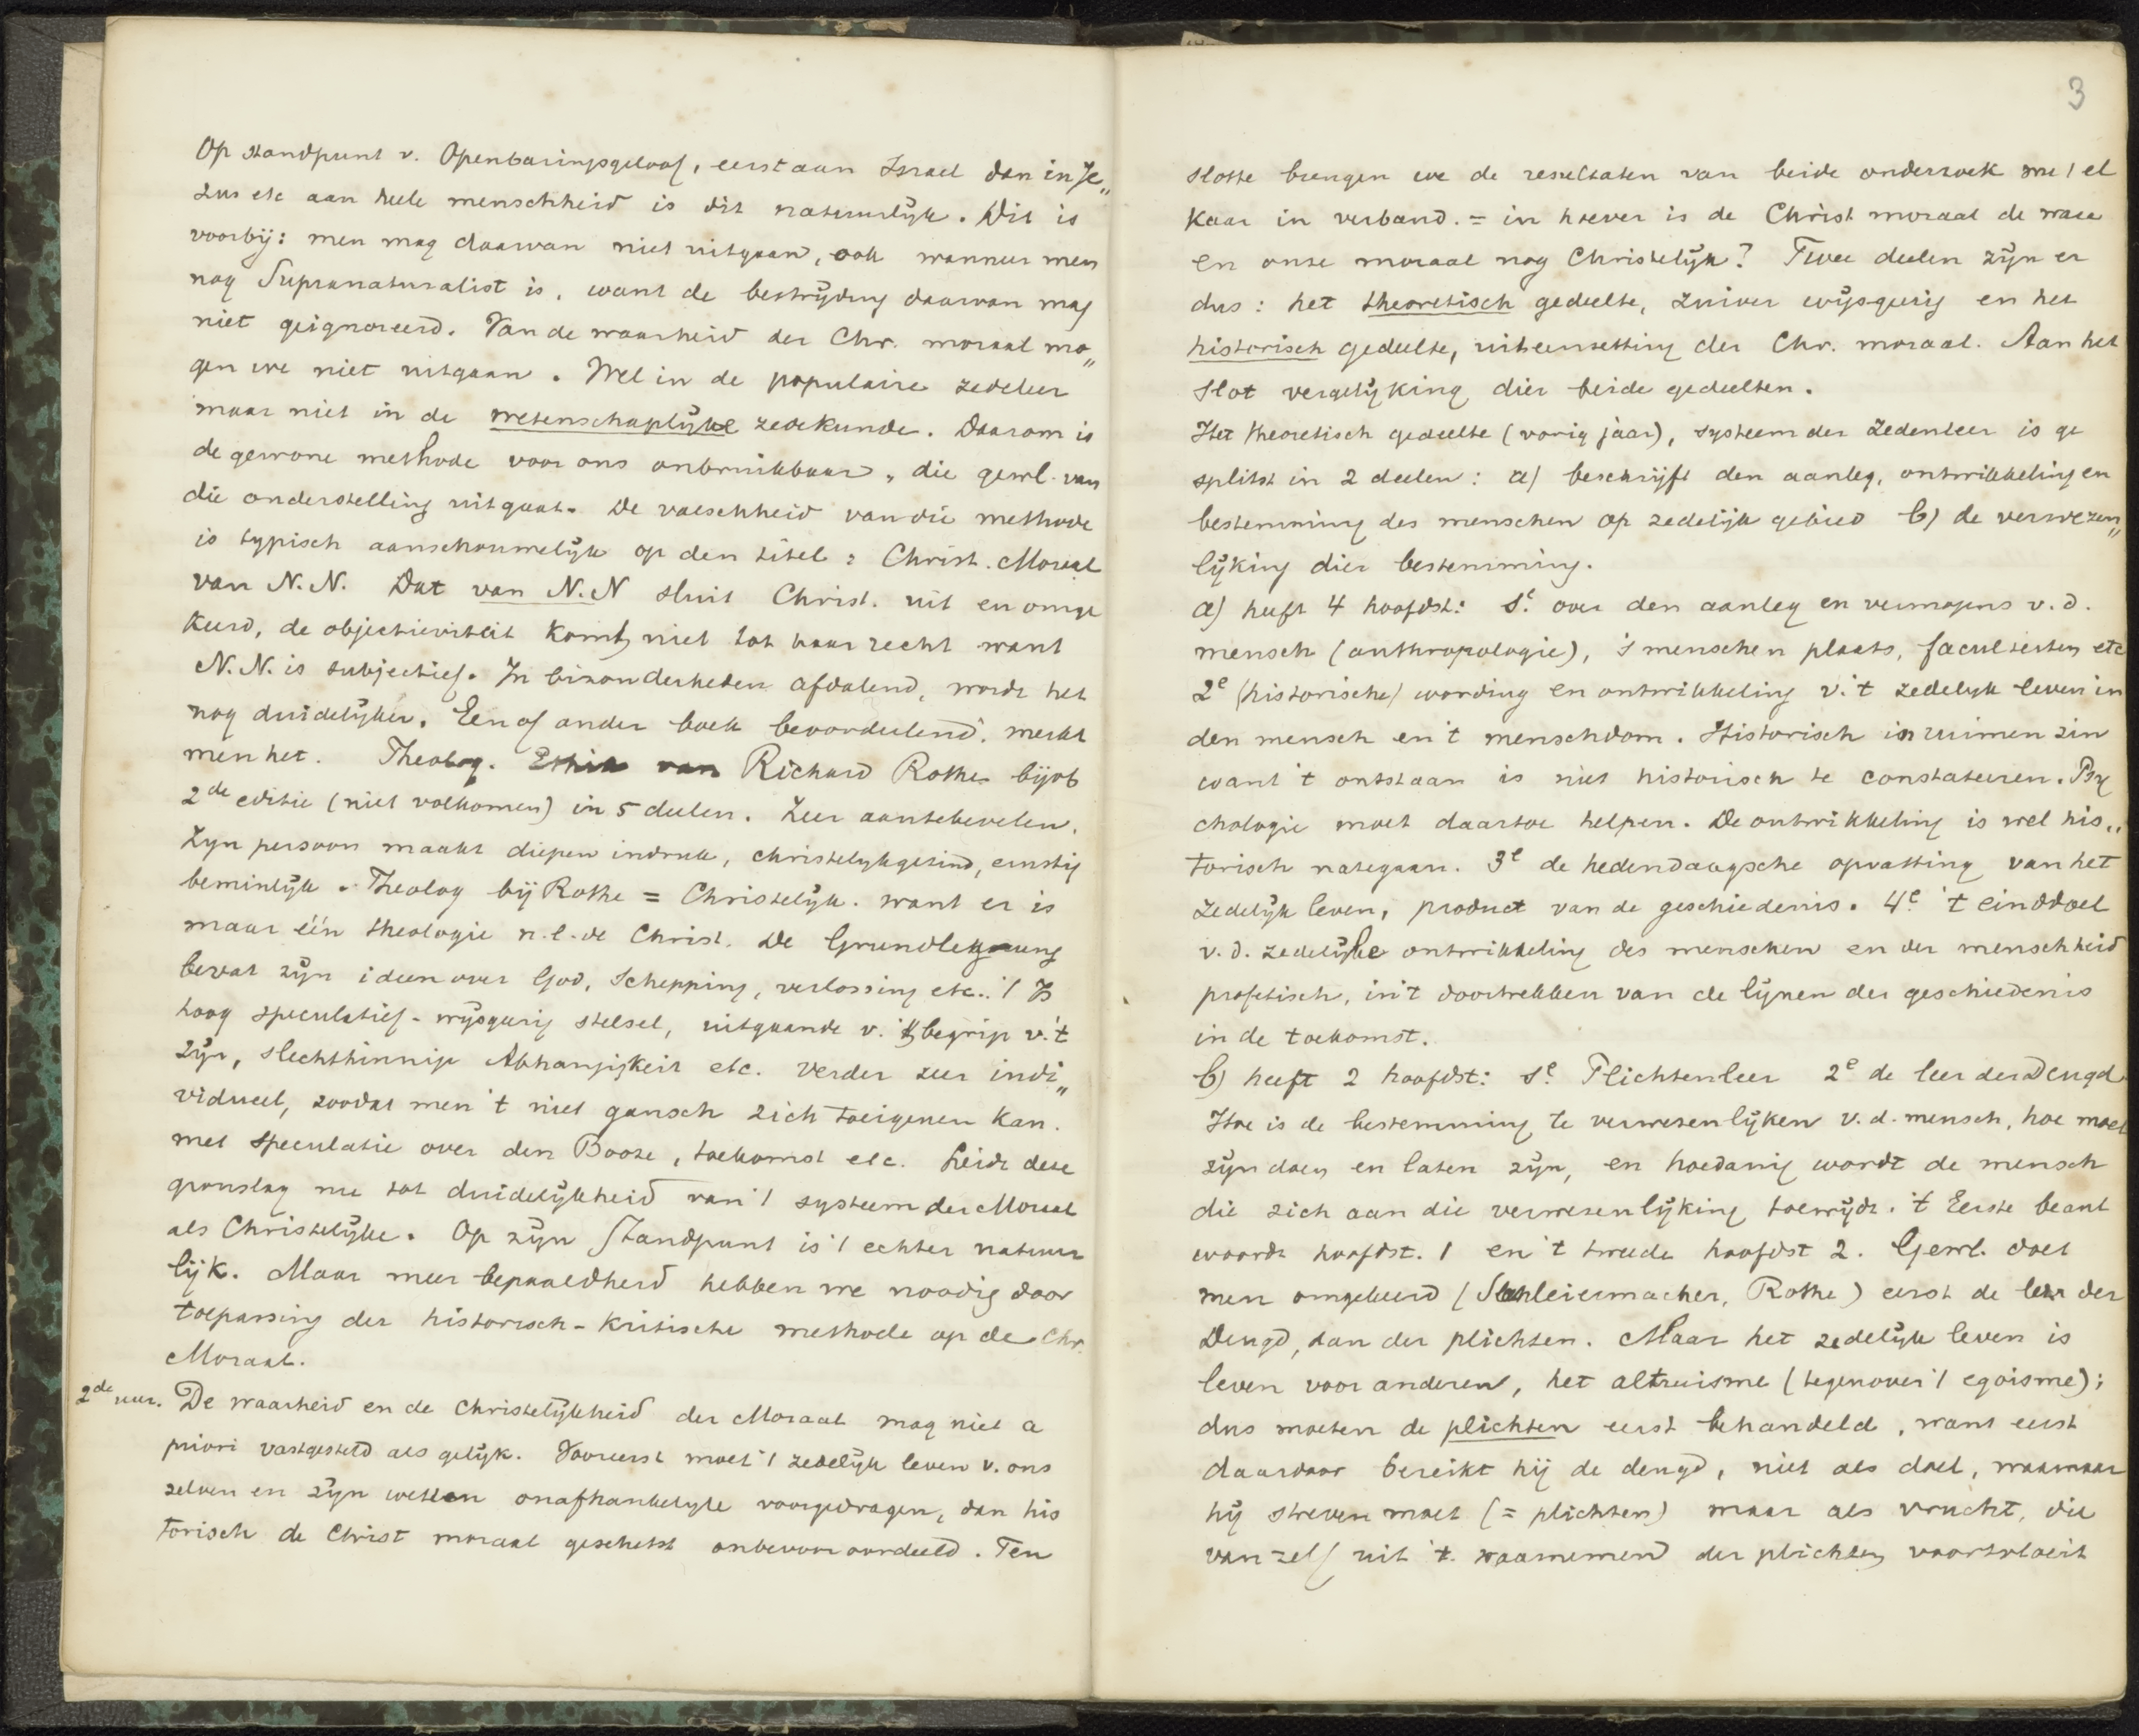 Op standpunt v. Openbaringsgeloof, eerst aan Israel dan in Je„
zus etc aan heele menschheid is dit natuurlijk. Dit is
voorbij: men mag daarvan niet uitgaan, ook wanneer men
nog Supranaturalist is, want de bestrijding daarvan mag
niet geignoreerd. Van de waarheid der Chr. moraal mo„
gen we niet uitgaan. Wel in de populaire zedeleer
maar niet in de wetenschaplijke zedekunde. Daarom is
de gewone methode voor ons onbruikbaar, die gewl. van
die onderstelling uitgaat. De valschheid van die methode
is typisch aanschouwelijk op den titel: Christ. Moraal
van N.N. Dat van N.N sluit Christ. uit en omge
keerd, de objectieviteit komt niet tot haar recht want
N.N. is subjectief. In bizonderheden afdalend, wordt het
nog duidelijker. Een of ander boek beoordeelend, merkt
men het. Theolog. Ethik van Richard Rothe bijvb
2de editie (niet volkomen) in 5 deelen. Zeer aantebevelen.
Zijn persoon maakt diepen indruk, christelijkgezind, ernstig
beminlijk. Theolog bij Rothe = Christelijk. want er is
maar één theologie n.l. de Christ. De Grundlegung
bevat zijn ideen over God, Schepping, verlossing etc. 't Is
hoog speculatief-wijsgeerig stelsel, uitgaande v. 't begrip v.'t
Zijn, slechthinnige Abhangigkeit etc. Verder zeer indi„
vidueel, zoodat men 't niet gansch zich toeigenen kan.
met speculatie over den Booze, toekomst etc. Leidt deze
grondslag nu tot duidelijkheid van 't systeem der Moraal
als Christelijke. Op zijn Standpunt is 't echter natuur
lijk. Maar meer bepaaldheid hebben we noodig door
toepassing der historisch-kritische methode op de Chr.
Moraal.
2de uur. De waarheid en de Christelijkheid der Moraal mag niet a
priori vastgesteld als gelijk. Vooreerst moet 't zedelijk leven v. ons
zelven en zijn wetten onafhankelijk voorgedragen, dan his
torisch de Christ moraal geschetst onbevooroordeeld. Ten
3
slotte brengen we de resultaten van beide onderzoek met el
kaar in verband. = in hoever is de Christ moraal de ware
en onze moraal nog Christelijk? Twee deelen zijn er
dus: het theoretisch gedeelte, zuiver wijsgerig en het
historisch gedeelte, uiteenzetting der Chr. moraal. Aan het
slot vergelijking dier beide gedeelten.
Het theoretisch gedeelte (vorig jaar), systeem der Zedenleer is ge
splitst in 2 deelen: a) beschrijft den aanleg, ontwikkeling en
bestemming des menschen op zedelijk gebied b) de verwezen„
lijking dier bestemming.
a) heeft 4 hoofdst: 1e. over den aanleg en vermogens v.d.
mensch (anthropologie), 's menschen plaats, faculteiten etc
2e (historische) wording en ontwikkeling v.'t zedelijk leven in
den mensch en 't menschdom. Historisch in ruimen zin
want 't ontstaan is niet historisch te constateeren. Psy
chologie moet daartoe helpen. De ontwikkeling is wel his„
torisch nategaan. 3e de hedendaagsche opvatting van het
zedelijk leven, product van de geschiedenis. 4e. 't einddoel
v.d. zedelijke ontwikkeling des menschen en der menschheid
profetisch, in 't doortrekken van de lijnen der geschiedenis
in de toekomst.
b) heeft 2 hoofdst: 1e. Plichtenleer 2e de leer der Deugd
Hoe is de bestemming te verwesenlijken v.d. mensch, hoe moet
zijn doen en laten zijn, en hoedanig wordt de mensch
die zich aan die verwesenlijking toewijdt. 't Eerste beant
woordt hoofdst. 1 en 't tweede hoofdst 2. Gewl. doet
men omgekeerd (Schleiermacher, Rothe) eerst de leer der
Deugd, dan der plichten. Maar het zedelijk leven is
leven voor anderen, het altruisme (tegenover 't egoisme);
dus moeten de plichten eerst behandeld, want eerst
daardoor bereikt hij de deugd, niet als doel, waarnaar
hij streven moet (= plichten) maar als vrucht, die
van zelf uit 't. waarnemend der plichten voortvloeit